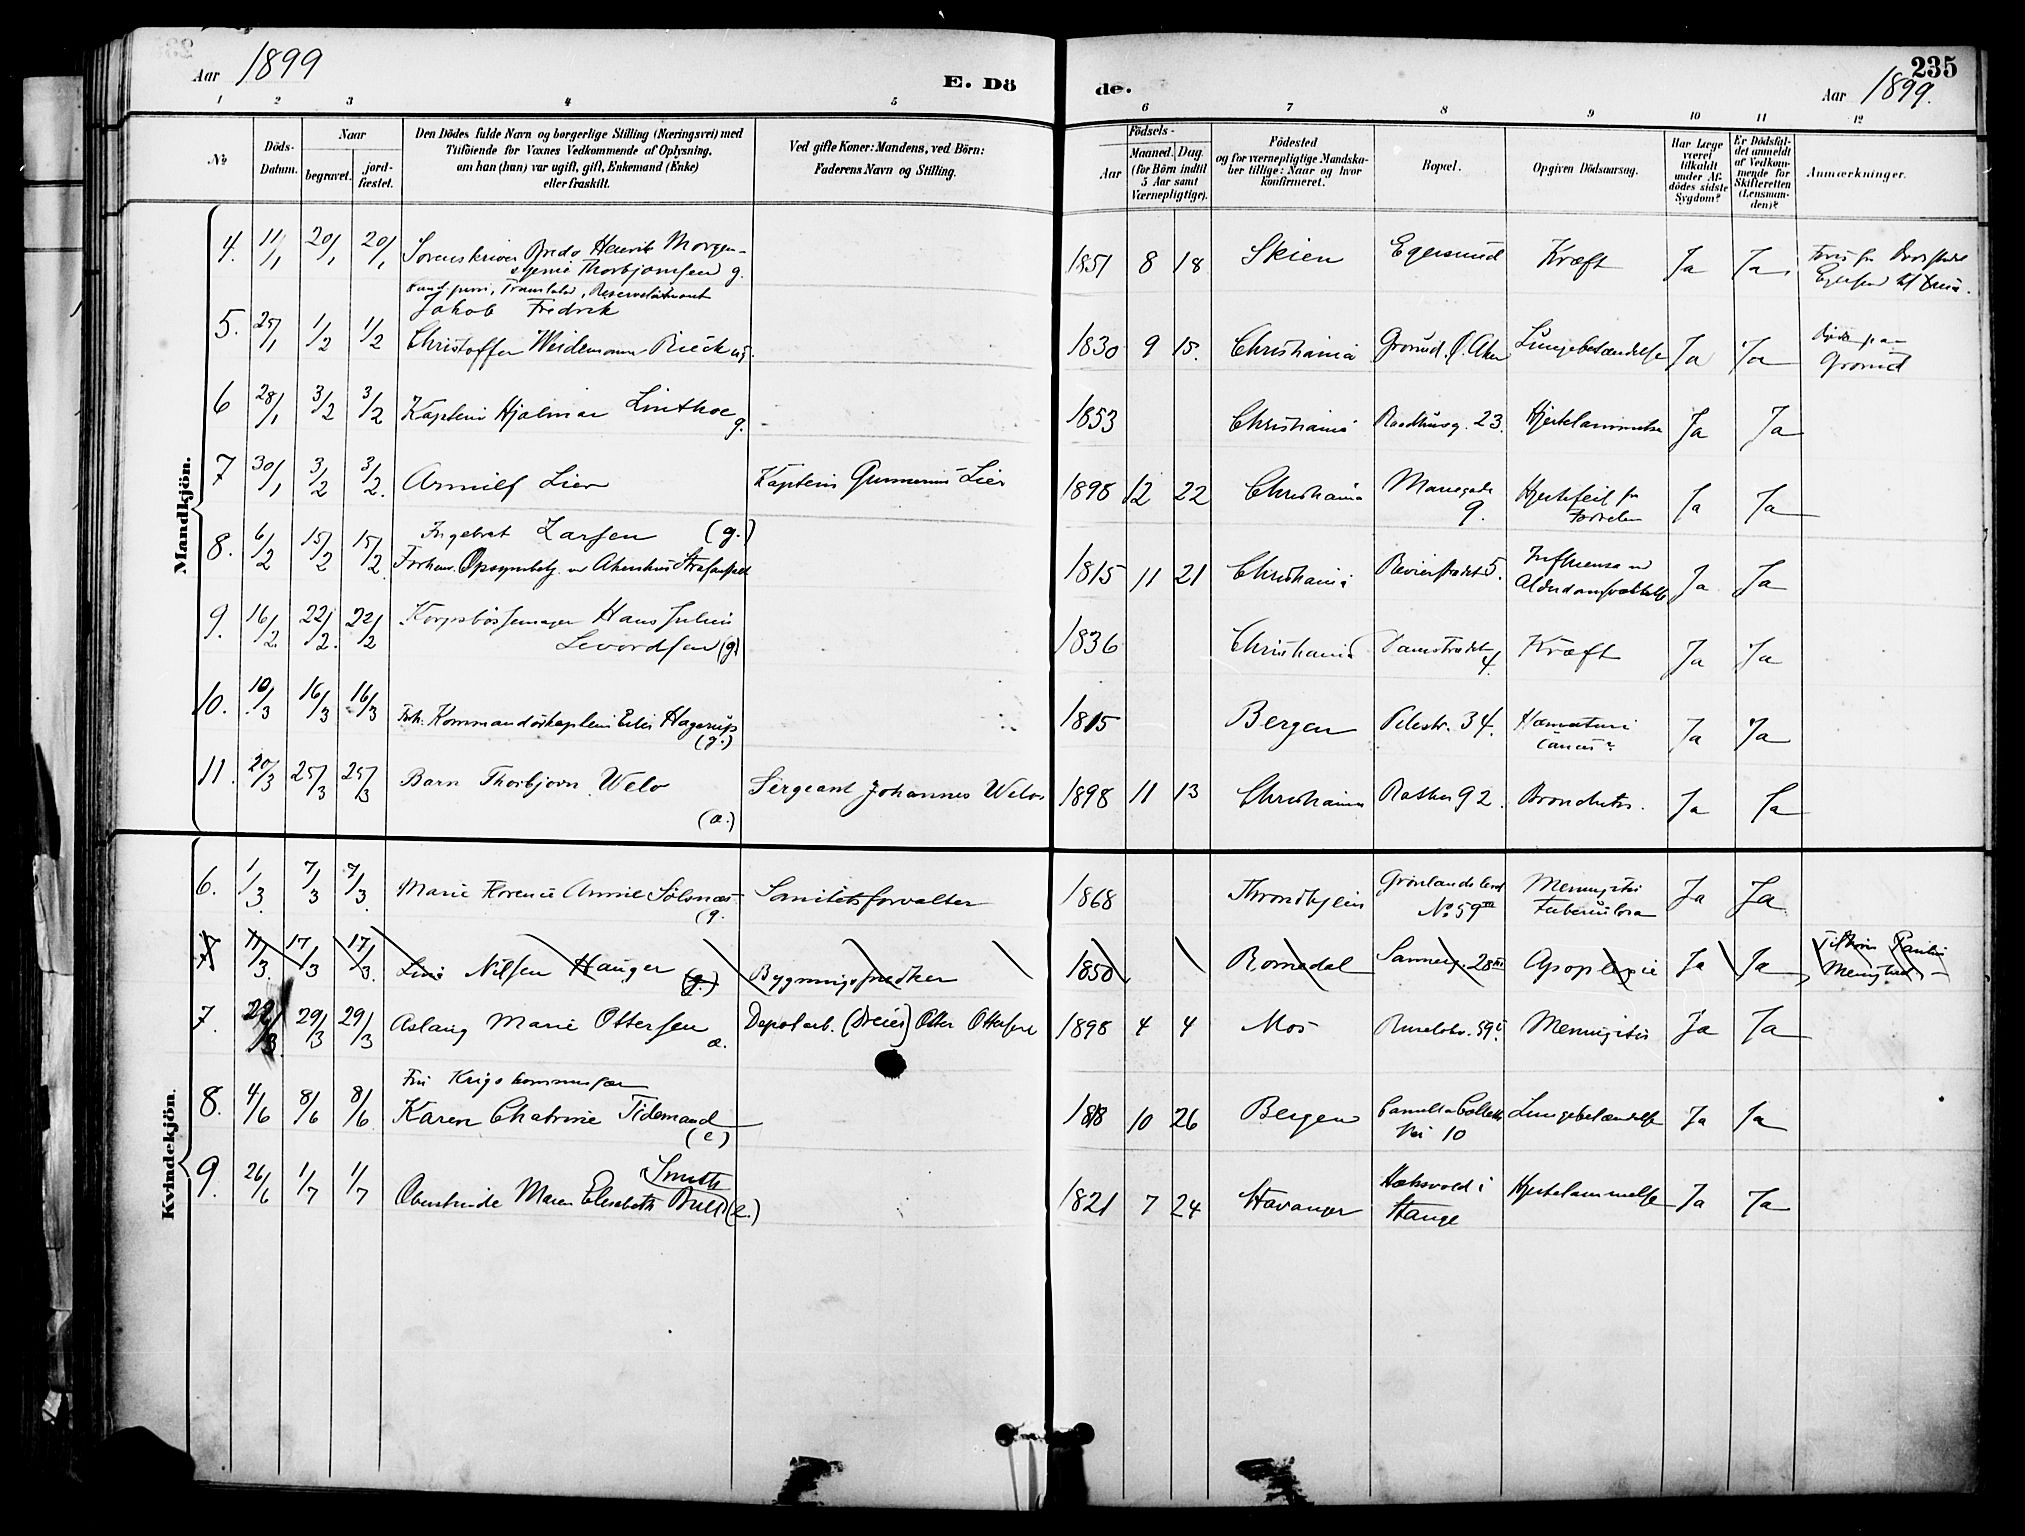 235
Aar 1899
E. Dö
de.
Aar 1899.
1 2 3 4 5 6 7 8 9 10 11 12
No
Döds-
Datum.
Naar
begravet.
jord-
fæstet.
Den Dödes fulde Navn og borgerlige Stilling (Næringsvei) med
Tilföiende for Voxnes Vedkommende af Oplysning,
om han (hun) var ugift, gift, Enkemand (Enke)
eller fraskilt.
Ved gifte Koner: Mandens, ved Börn:
Faderens Navn og Stilling.
Födsels-
Aar
Maaned.
Dag
(for Börn indtil
5 Aar samt
Værnepligtige).
Födested
og for værnepligtige Mandska-
ber tillige: Naar og hvor
konfirmeret.
Bopæl.
Opgiven Dödsaarsag.
Har Læge
været
tilkaldt
under Af-
dödes sidste
Sygdom?
Er Dödsfal-
det anmeldt
af Vedkom-
mende for
Skifteretten
(Lensman-
den)?
Anmærkninger.
Mandkjön.
4. 11/1 20/1 20/1 Sorenskriver Bredo Henrik Morgen-
stjerne Thorbjørnsen g. 1851 8 18 Skien Egersund Kræft Ja Ja.
Jakob Fredrik
5. 25/1 1/2 1/2 Christoffer Weidemann Rieck 1830 9 15. Christiania Grorud Lungebetændelse Ja Ja
Grorud
6 28/1 3/2 3/2 Kaptein Hjalmar Linthoe g. 1853 Christiania Raadhusg. 23. Hjertelammelse Ja Ja
7 30/1 3/2 3/2. Arnulf Lier Kaptein Gunnerius Lier 1898 12 22 Christiania 9. Hjertefeil Ja Ja
8. 6/2 15/2 15/2 Ingebret Larsen (g.)
1815 11 21 Christiania Revierstrædet 5. Influensa Ja Ja
9. 16/2. 22/2. 22/2 Korpsbøssemager Hans Julius
Levordsen (g) 1836 Christiania Damstrædet 4. Kræft Ja Ja
10. 10/3 16/3 16/3 Kommandørkaptein Eiler Hagerup
(g.) 1815 Bergen Pilestr. 34. Hæmaturi Ja Ja
11. 20/3 25/3 25/3 Barn Thorbjørn Welo
(a.) Sergeant Johannes Welo 1898 11 13 Christiania 92. Bronchitis. Ja Ja
Kvindekjön.
6. 1/3. 7/3 7/3. Marie Florence Annie Sølsnæs
g. Sanitetsforvalter 1868 Throndhjem No 59 III Meningitis
Tuberculosa Ja Ja
7 11/3. 17/3 17/3. Nilsen Hauger (g.) Bygningssnedker 1850 Romedal 28 III Apoplexie Ja Ja
7. 22/3. 29/3 29/3 Aslaug Marie Ottersen a. Depotarb. (Dreier) Otter Ottersen 1898 4 4 Mos Meningitis Ja Ja
Fru Krigskommissær
8. 4/6 8/6 8/6 Karen Chatrine Tidemand
(e) 1818 10 26 Bergen Camilla Colletts
Vei 10 Lungebetændelse Ja Ja
Smith
9. 26/6 1/7 1/7 Maren Elisabeth Bull (e.) 1821 7 24 Stavanger
Stange Hjertelammelse Ja Ja